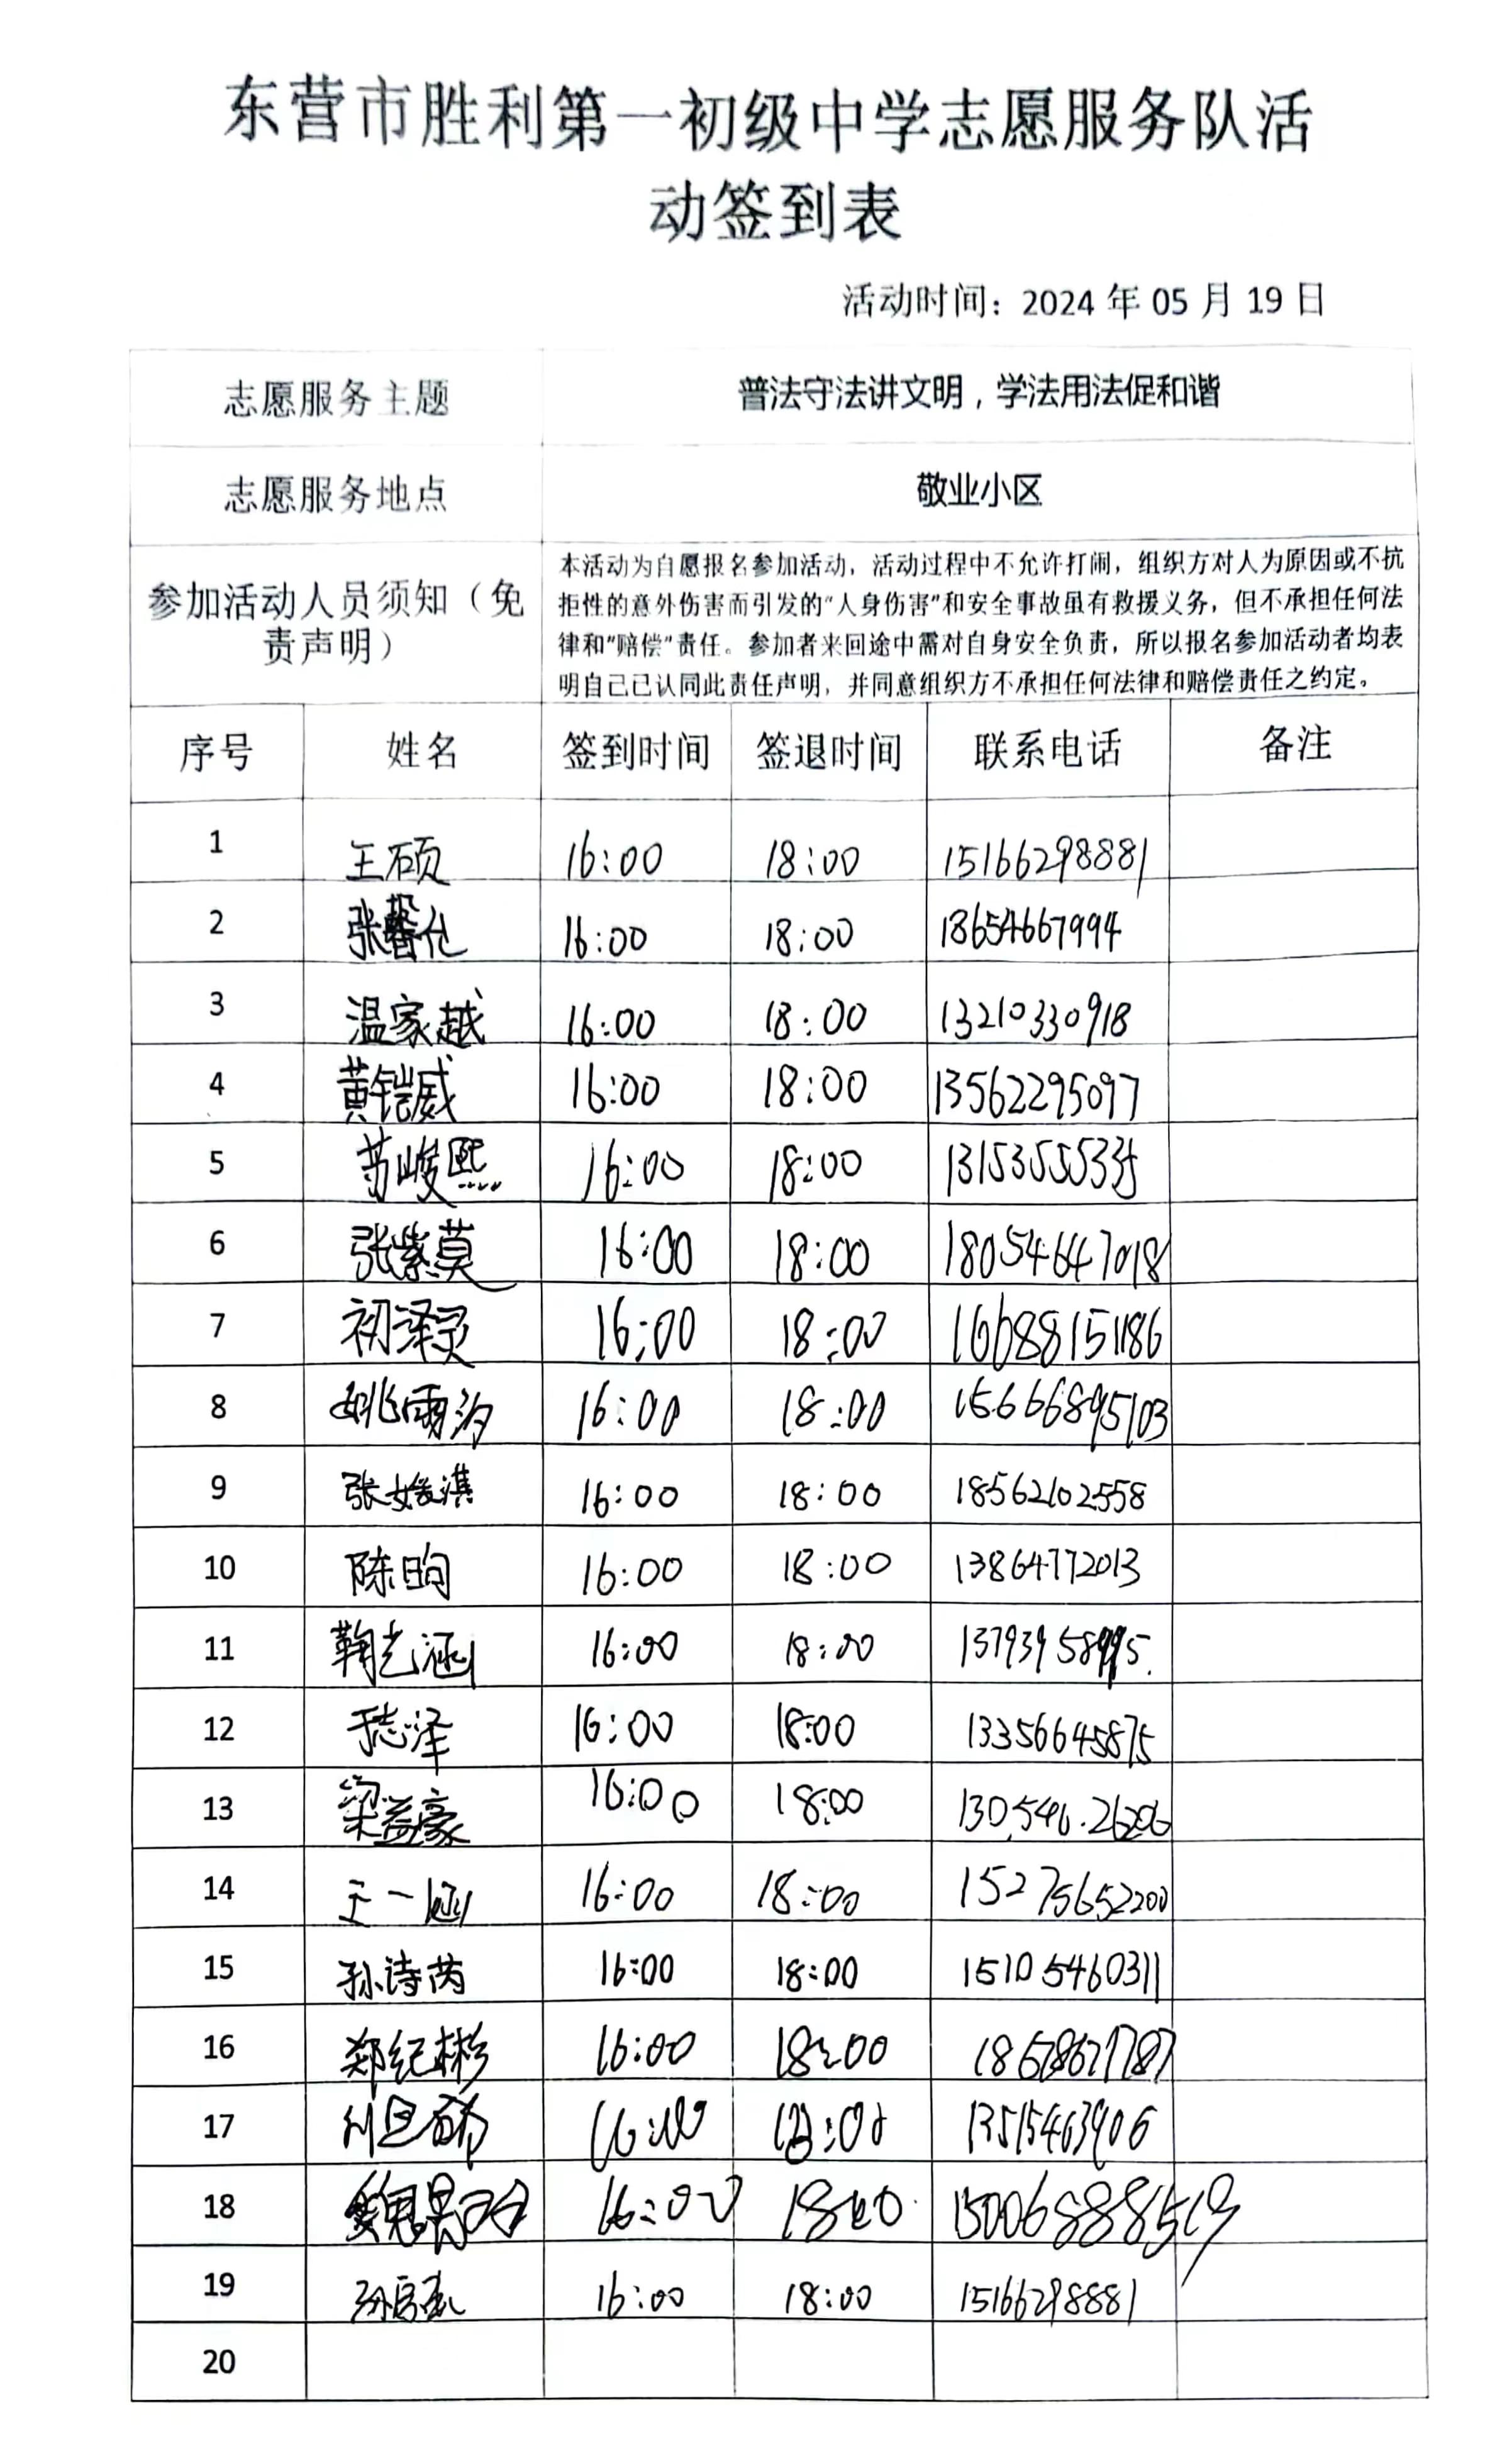 东营市胜利第一初级中学志愿服务队活
动签到表
活动时间：2024 年 05 月 19 日
志愿服务主题 普法守法讲文明，学法用法促和谐
志愿服务地点 敬业小区
参加活动人员须知（免
责声明）
本活动为自愿报名参加活动，活动过程中不允许打闹，组织方对人为原因或不抗
拒性的意外伤害而引发的“人身伤害”和安全事故虽有救援义务，但不承担任何法
律和“赔偿”责任。参加者来回途中需对自身安全负责，所以报名参加活动者均表
明自己已认同此责任声明，并同意组织方不承担任何法律和赔偿责任之约定。
序号 姓名 签到时间 签退时间 联系电话 备注
1 王硕 16:00 18:00 15166298881
2 张馨允 16:00 18:00 18654667994
3 温家越 16:00 18:00 13210330918
4 黄铠威 16:00 18:00 13562295097
5 苏峻熙 16:00 18:00 13153555335
6 张紫莫 16:00 18:00 18054647018
7 初泽灵 16:00 18:00 16688151186
8 姚雨汐 16:00 18:00 15666895103
9 张媛淇 16:00 18:00 18562102558
10 陈昫 16:00 18:00 13864772013
11 鞠艺涵 16:00 18:00 13793958995
12 于志泽 16:00 18:00 13356645875
13 梁益豪 16:00 18:00 130.546.26206
14 王一涵 16:00 18:00 15275652200
15 孙诗芮 16:00 18:00 15105460311
16 郑纪彬 16:00 18:00 18678677787
17 16:00 18:00 13515463906
18 16:00 18:00 15006888519
19 16:00 18:00 15166298881
20